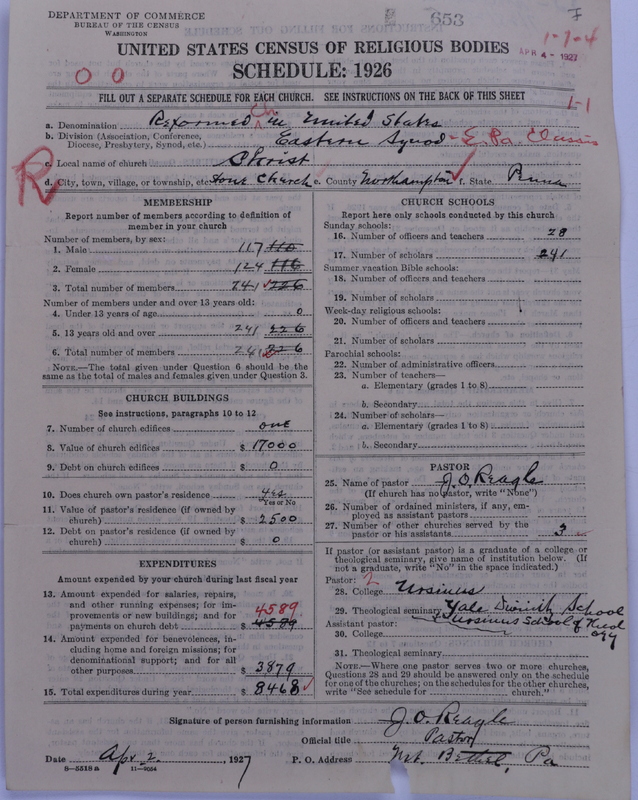 DEPARTMENT OF COMMERCE
BUREAU OF THE CENSUS
WASHINGTON
653
1-7-4
APR 4 - 1927
UNITED STATES CENSUS OF RELIGIOUS BODIES
SCHEDULE: 1926
0 0
FILL OUT A SEPARATE SCHEDULE FOR EACH CHURCH. SEE INSTRUCTIONS ON THE BACK OF THIS SHEET
1-1
a. Denomination Reformed Ch in United States
b. Division (Association, Conference, Diocese, Presbytery, Synod, etc.) Eastern Synod - E. Pa. Classis
c. Local name of church Christ
R
d. City, town, village, or township, etc. Church e. County Northampton f. State Penna
MEMBERSHIP
Report number of members according to definition of member in your church
Number of members, by sex:
1. Male 117 110
2. Female 124 116
3. Total number of members 241 226
Number of members under and over 13 years old:
4. Under 13 years of age 0
5. 13 years old and over 241 226
6. Total number of members 241 226
NOTE.—The total given under Question 6 should be the same as the total of males and females given under Question 3.
CHURCH BUILDINGS
See instructions, paragraphs 10 to 12
7. Number of church edifices one
8. Value of church edifices $ 17000
9. Debt on church edifices $ 0
10. Does church own pastor's residence yes
Yes or No
11. Value of pastor's residence (if owned by church) $ 2500
12. Debt on pastor's residence (if owned by church) $ 0
EXPENDITURES
Amount expended by your church during last fiscal year
13. Amount expended for salaries, repairs, and other running expenses; for improvements or new buildings; and for payments on church debt 4589 $ 4589
14. Amount expended for benevolences, including home and foreign missions; for denominational support; and for all other purposes $ 3879
15. Total expenditures during year $ 8468
CHURCH SCHOOLS
Report here only schools conducted by this church
Sunday schools:
16. Number of officers and teachers 28
17. Number of scholars 241
Summer vacation Bible schools:
18. Number of officers and teachers
19. Number of scholars
Week-day religious schools:
20. Number of officers and teachers
21. Number of scholars
Parochial schools:
22. Number of administrative officers
23. Number of teachers—
a. Elementary (grades 1 to 8)
b. Secondary
24. Number of scholars—
a. Elementary (grades 1 to 8)
b. Secondary
PASTOR
25. Name of pastor J. O. Reagle
(If church has no pastor, write "None")
26. Number of ordained ministers, if any, employed as assistant pastors
27. Number of other churches served by the pastor or his assistants 3
If pastor (or assistant pastor) is a graduate of a college or theological seminary, give name of institution below. (If not a graduate, write "No" in the space indicated.)
Pastor: 2
28. College Ursinus
29. Theological seminary Yale Divinity School
Assistant pastor: & Ursinus School of Theology
30. College
31. Theological seminary
NOTE.—Where one pastor serves two or more churches, Questions 28 and 29 should be answered only on the schedule for one of the churches; on the schedules for the other churches, write "See schedule for church."
Signature of person furnishing information J. O. Reagle
Official title Pastor
Date Apr. 2, 1927 P. O. Address Mt. Bethel, Pa
8-5518a 11-9054